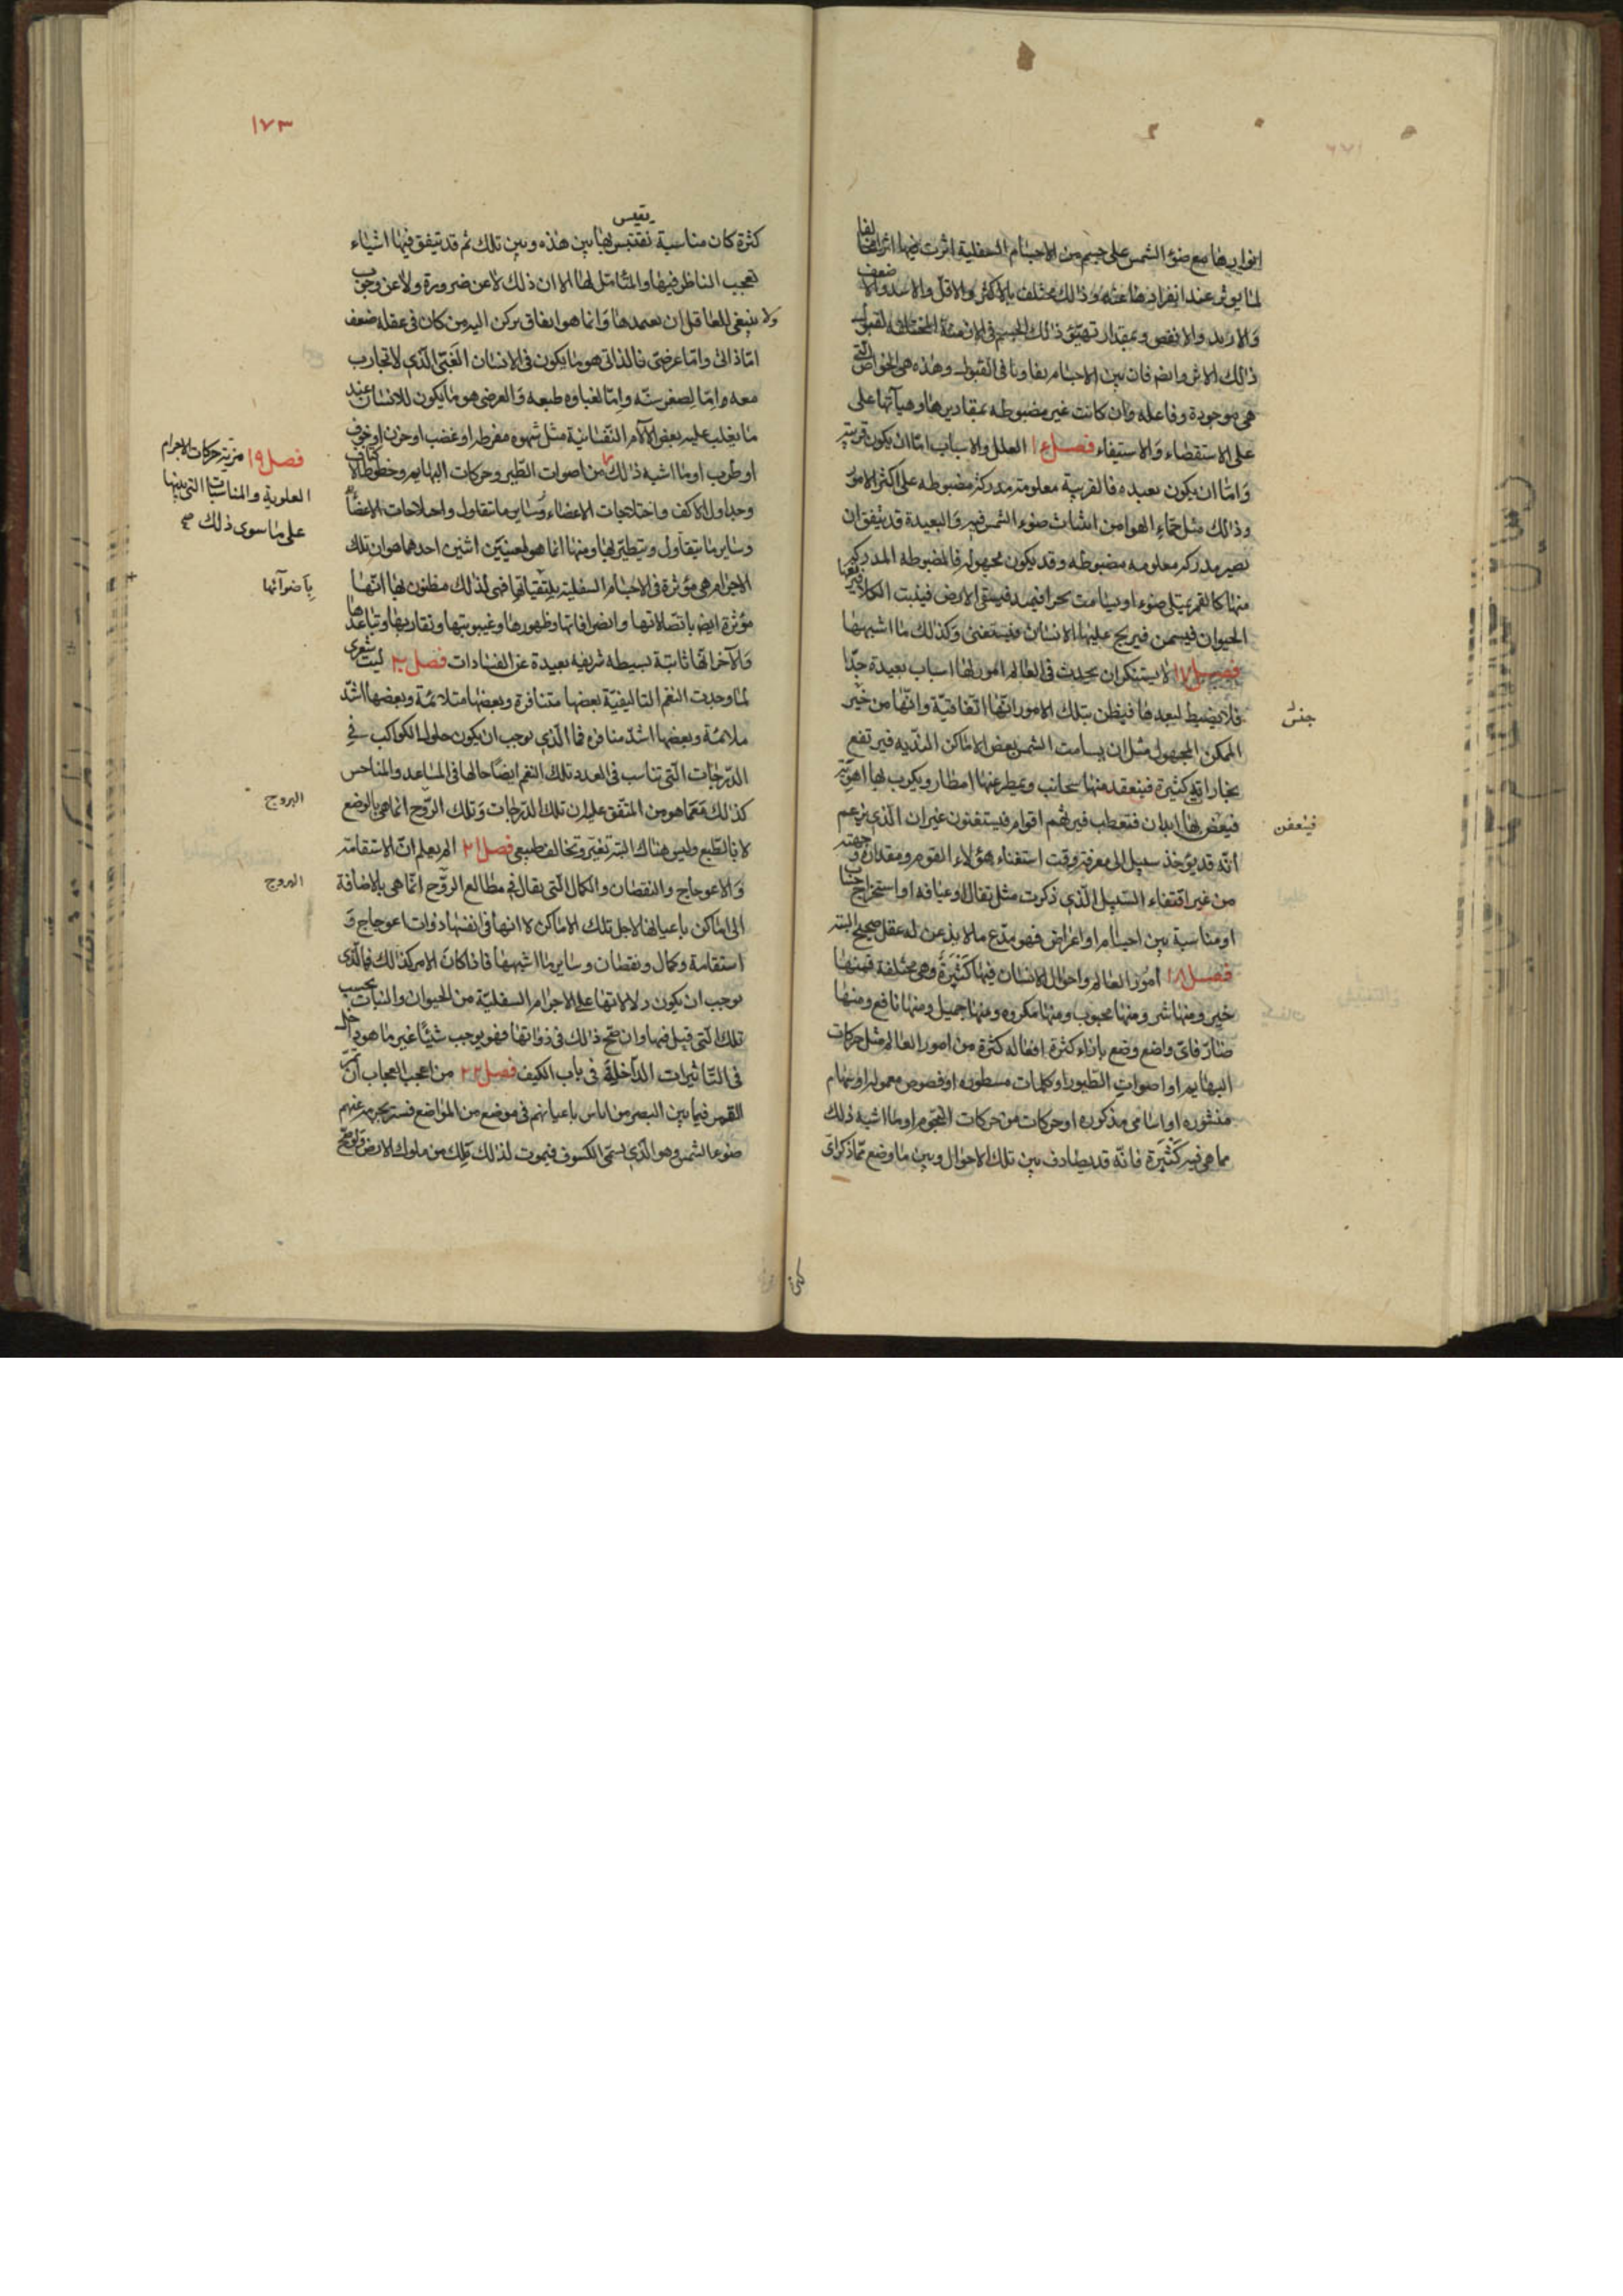 انوارها مع ضوء الشمس على جسم من الاجسام السفلية اثرت فيها اثرا مخالفا
لما يوثر عند انفرادها عنه وذلك مختلف بالاكثر والاقل والاشد والاضعف
والازيد والانقص وبمقدار تهيّؤ ذلك الجسم فى الازمنة المختلفة لقبول
ذلك الاثر وايضا فان بين الاجسام تفاوتا فى القبول وهذه هى الخواص التى
هى موجودة وفاعله وان كانت غير مضبوطه بمقاديرها وهيآتها على
على الاستقصاء والاستيفاء فصل ١٤ العلل والاسباب امّا ان يكون قريبة
وامّا ان يكون بعيده فالقريبة معلومة مدركة مضبوطه على اكثر الامور
وذلك مثل حماء الهوا من انبثاث ضوء الشمس فيه والبعيدة قد يتفق ان
تصير مدركه معلومه مضبوطه وقد يكون مجهولة فالمضبوطه المدركة
منها كالقمر يمتلى ضوء او يسامت بحرا فيمد فيسقى الارض فينبت الكلا فيرعيها
الحيوان فيسمن فيربح عليها الانسان فيستغنى وكذلك ما اشبهها
فصل ١٧ لا يستنكر ان يحدث فى العالم امور لها اسباب بعيدة جدّا
فلا يضبط لبعدها فيظن بتلك الامور انّها اتفاقيّة وانّها من خير
جنس
الممكن المجهول مثل ان يسامت الشمس بعض الاماكن النديه فيرتفع
بخارات كثيرة فينعقد منها سحائب ويمطر عنها امطار ويكرب بها اهوية
فيعفن بها ابدان فتعطب فيرثهم اقوام فيستغنون غير ان الذى يزعم
فينعفن
انّه قد يؤخذ سبيل الى معرفة وقت استغناء هؤلاء القوم ومقداره وجهته
من غير اقتفاء السّبيل الّذى ذكرت مثل تفال او عيافه او استخراج حساب
او مناسبة بين اجسام او اعراض فهو يدّع ما لا يذعن له عقل صحيح البتة
فصل ١٨ امور العالم واحوال الانسان فيها كثيرة وهى مختلفة فمنها
خير ومنها شر ومنها محبوب ومنها مكروه ومنها جميل ومنها نافع ومنها
ضارّ فاىّ واضع وضع بازاء كثرة افعاله كثرة من امور العالم مثل حركات
البهايم او اصوات الطيور او كلمات مسطوره او فصوص معمولة او سهام
منثوره او اسامى مذكوره او حركات من حركات النجوم او ما اشبه ذلك
مما هى فيه كثيرة فانه قد يصادف بين تلك الاحوال وبين ما وضع ممّا ذكر اىّ
كثرة
١٧٣
يقيس
كثرة كان مناسبة نقتبس بها بين هذه وبين تلك ثم قد يتفق فيها اشياء
تعجب الناظر فيها والمتامّل لها الا ان ذلك لا عن ضرورة ولا عن وجوب
ولا ينبغى للعاقل ان يعتمدها وانما هو اتفاق يركن اليه من كان فى عقله ضعف
امّا ذاتى وامّا عرضى فالذاتى هو ما يكون فى الانسان الغبّى الّذى لا تجارب
معه وامّا لصغر سنّه وامّا لغباوه طبعه والعرضى هو ما يكون للانسان عند
ما يغلب عليه بعض الآلام النّفسانيّة مثل شهوه مفرطه او غضب او حزن او خوف
او طرب او ما اشبه ذلك من اصوات الطّير وحركات البهايم وخطوط الاكتاف
وجداول الاكف واختلاجات الاعضاء وساير ما يتفاول واختلاجات الاعضاء
وساير ما يتفاول ويتطيّر بها ومنها انما هو لمعنيين اثنين احدهما هو ان تلك
الاجرام هى مؤثرة فى الاجسام السفلية بكيفيّاتها فهى لذلك مظنون بها انّها
مؤثرة ايضا باتصالاتها وانصرافاتها وظهورها وغيبوبتها وتقاربها وتباعدها
والآخر انّها ثابتة بسيطه شريفه بعيدة عن الفسادات فصل ٢٠ ليت شعرى
لما وجدت النغم التاليفيّة بعضها متنافرة وبعضها متلائمة وبعضها اشدّ
ملائمة وبعضها اشدّ منافره فما الّذى يوجب ان يكون حلول الكواكب فى
الدّرجات الّتى تناسب فى العدد تلك النغم ايضا حالها فى المساعد والمناحس
كذلك مع ما هو من المتّفق عليه ان تلك الدّرجات وتلك الرّوج انما هى بالوضع
لا بالطّبع وليس هناك البتة تغير وتخالف طبيعى فصل ٢١ الم يعلم انّ الاستقامة
والاعوجاج والنقصان والكمال الّتى يقال فى مطالع الرّوج انّما هى بالاضافة
الى اماكن باعيانها لاجل تلك الاماكن لا انها فى انفسها ذوات اعوجاج و
استقامة وكمال ونقصان وساير ما اشبهها فاذا كان الامر كذلك فما الّذى
يوجب ان يكون دلالاتها على الاجرام السفليّة من الحيوان والنبات بحسب
تلك الّتى قيل فيها وان صحّ ذلك فى ذواتها فهو يوجب شيئا غير ما هو داخل
فى التّاثيرات الدّاخلة فى باب الكيف فصل ٢٢ من اعجب العجاب ان يمر
القمر فيما بين البصر من اناس باعيانهم فى موضع من المواضع فيستر بجرمه عنهم
ضوء الشمس وهو الّذى يسمّى الكسوف فيموت لذلك ملك من ملوك الارض ولو صحّ
فصل ١٩ مزية حركات الاجرام
العلوية والمناسبات التى بينها
على ما سوى ذلك صح
باضوآئها
البروج
البروج